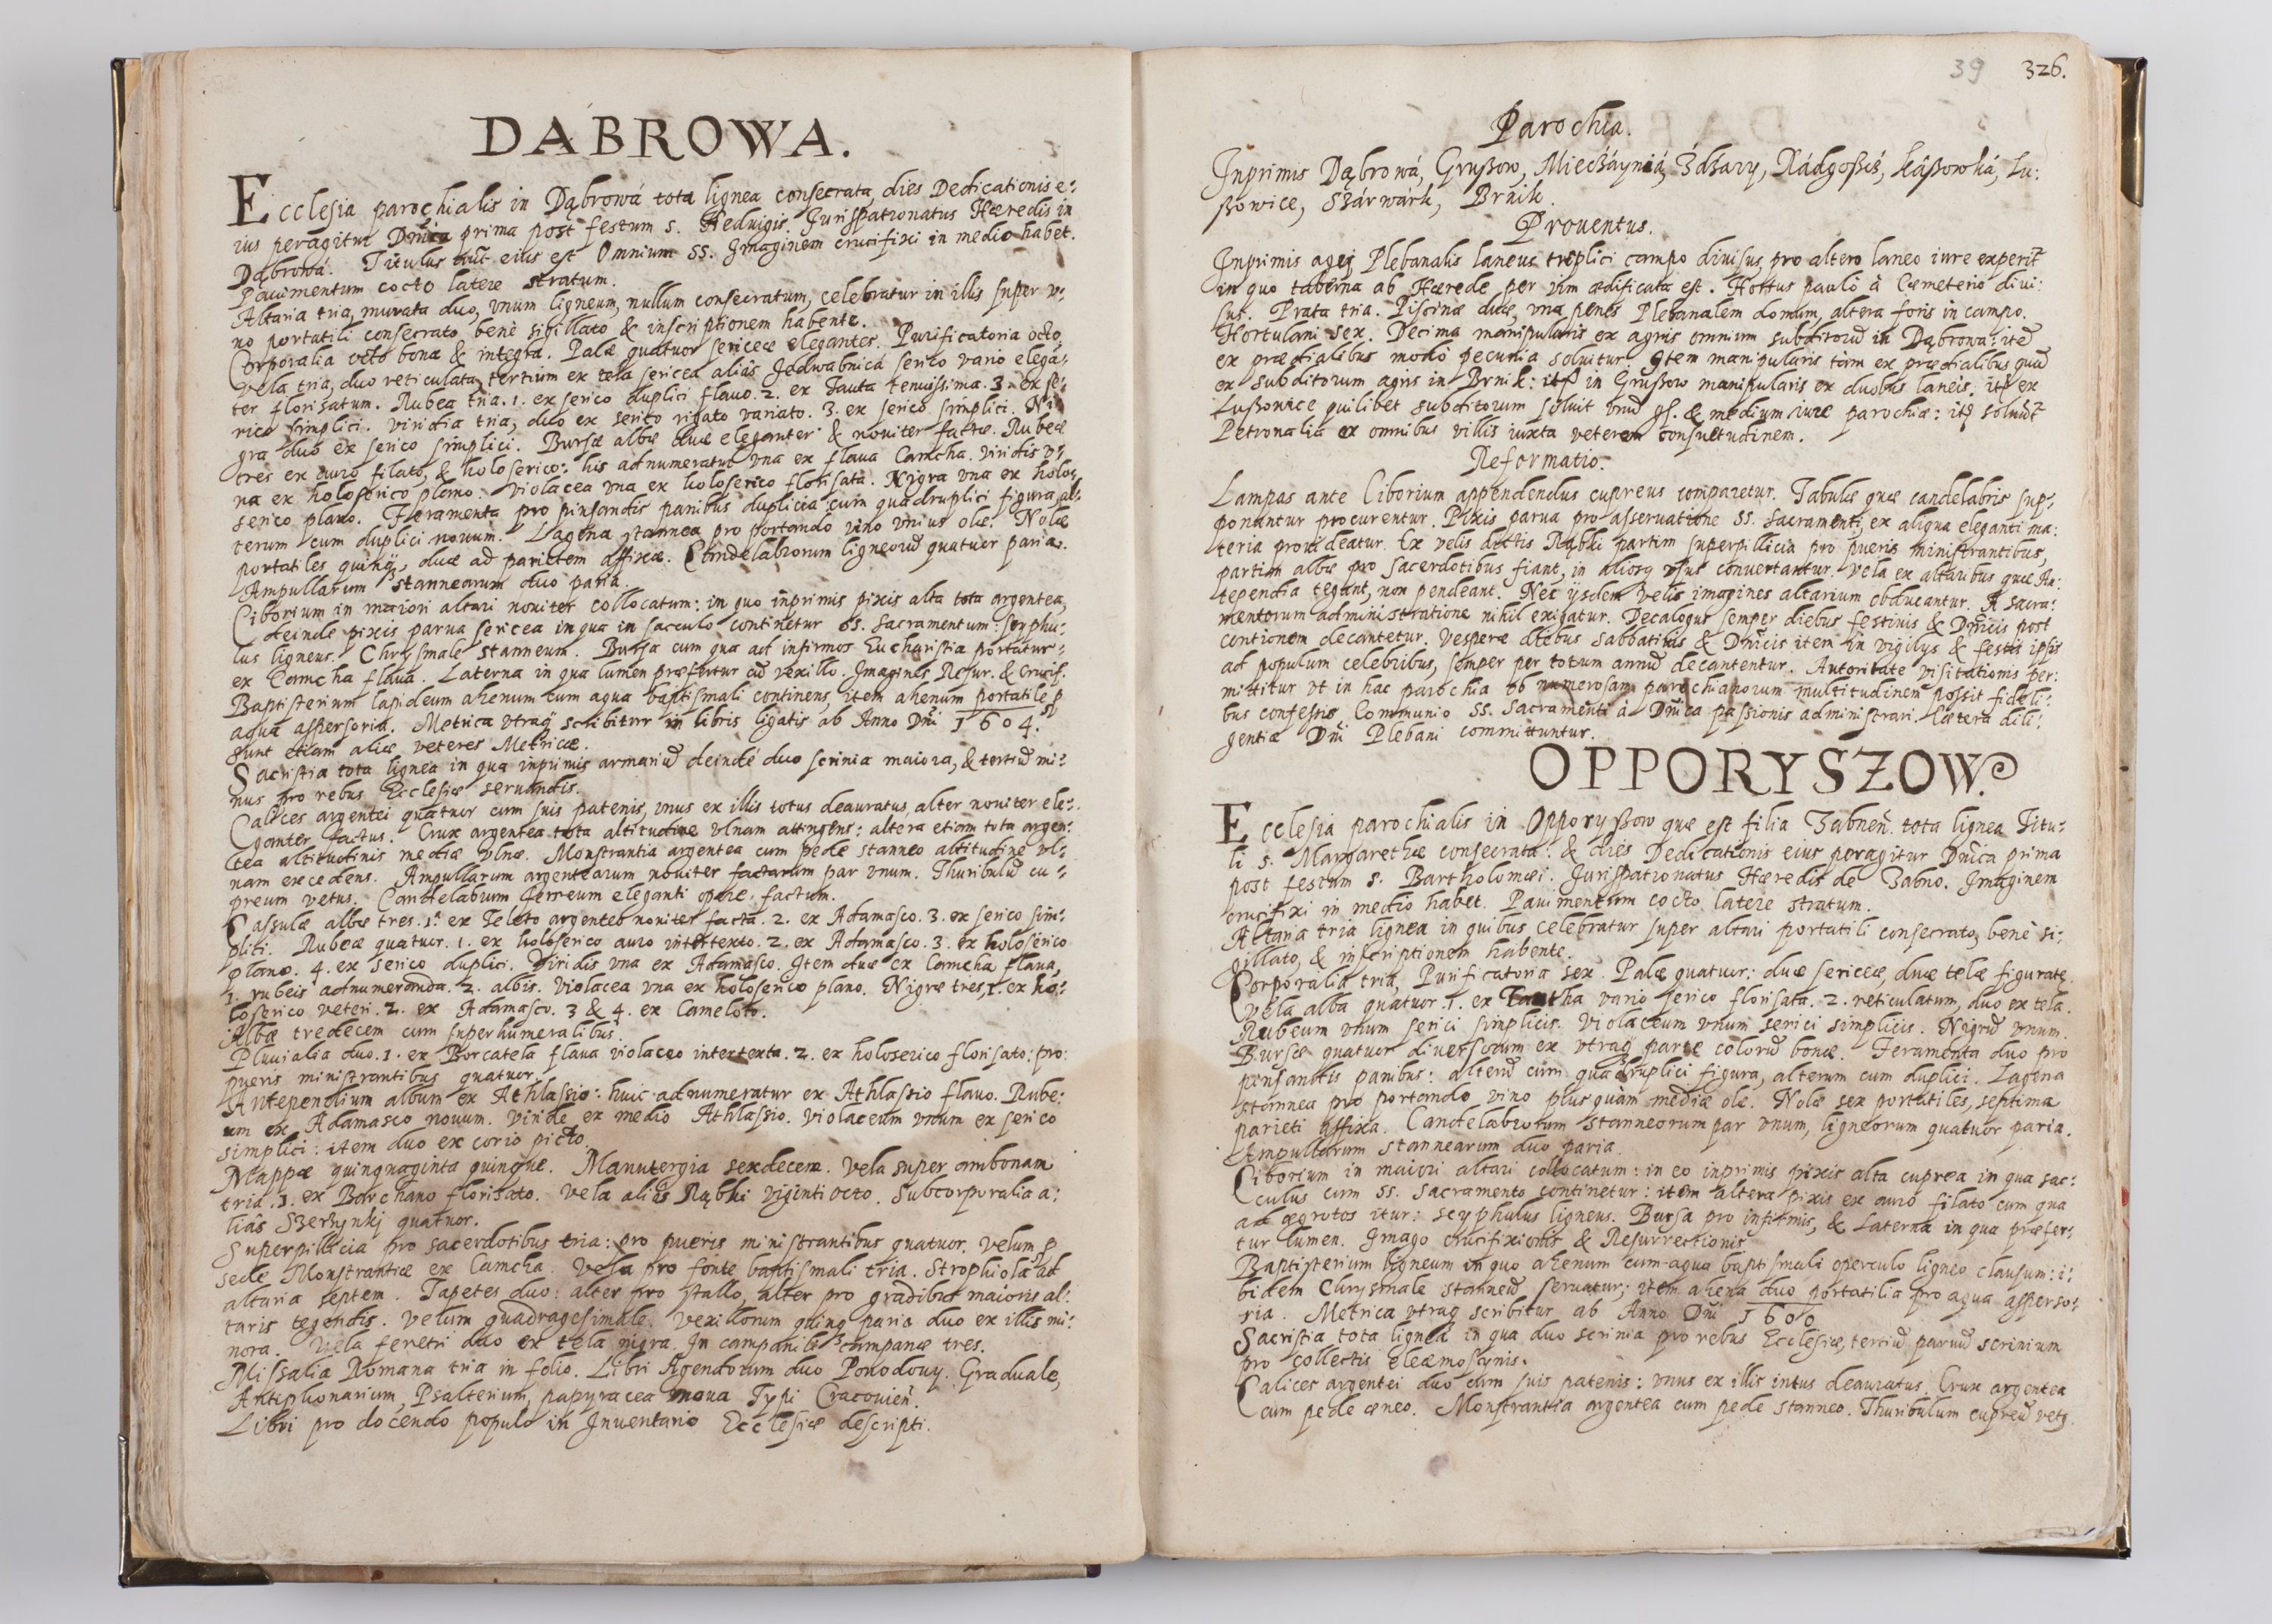 DABROWA.
Ecclesia parochialis in Dąbrowá tota lignea consecrata, dies Dedicationis e:
ius peragitur Dnica prima post festum s. Heduigis. Jurispatronatus Hæredis in
Dąbrowá. Titulus eius est Omnium SS. Jmaginem crucifixi in medio habet.
Pauimentum cocto latere stratum.
Altaria tria, murata duo, vnum ligneum, nullum consecratum, celebratur in illis super v:
no portatili consecrato benè sigillato & inscriptionem habente.
Corporalia octo bona & integra. Palæ quatuor sericeæ elegantes. Purificatoria octo,
Vela tria, duo reticulata, tertium ex tela sericea aliâs Jedwabnica serico vario elega:
ter florisatum. Rubea tria. 1. ex serico duplici flauo. 2. ex Tauta tenuissima. 3. ex se:
rico simplici. viridia tria, duo ex serico rigato variato. 3. ex serico simplici. Ni:
gra duo ex serico simplici. Bursæ albæ duæ eleganter & nouiter factæ. Rubeæ
tres ex auro filato, & holoserico: his adnumeratur vna ex flaua Camcha. viridis v:
na ex holoserico plano. violacea vna ex holoserico florisata. Nigra vna ex holos:
serico plano. Feramenta pro pinsandis panibus duplicia cum quadruplici figura, al:
terum cum duplici nouum. Lagena stannea pro portando vino vnius olæ. Nolæ
portatiles quinq, duæ ad parietem affixæ. Candelabrorum ligneorũ quatuor paria.
Ampullarum stannearum duo paria.
Ciborium in maiori altari nouiter collocatum: in quo inprimis pixis alta tota argentea,
deinde pixis parua sericea in qua in sacculo continetur SS. Sacramentum. scyphu:
lus ligneus. Chrysmale stanneum. Bursa cum qua ad infirmos Eucharistia portatur
ex Camcha flaua. Laterna in qua lumen præfertur cũ vexillo. Jmagines Resur. & Crucif.
Baptisterium lapideum ahenum cum aqua baptismali continens, item ahenum portatile p
aqua aspersoria. Metrica vtraq scribitur in libris ligatis ab Anno Dni 1604.
sunt etiam aliæ veteres Metricæ.
Sacristia tota lignea in qua inprimis armariũ deindè duo scrinia maiora, & tertiũ mi:
nus pro rebus Ecclesiæ seruandis.
Calices argentei quatuor cum suis patenis, vnus ex illis totus deauratus, alter nouiter ele:
ganter factus. Crux argentea tota altitudine vlnam attingens: altera etiam tota argen:
tea altitudinis mediæ vlnæ. Monstrantia argentea cum pede stanneo altitudine vl:
nam excedens. Ampullarum argentearum nouiter factarum par vnum. Thuribulũ cu:
preum vetus. Candelabrum ferreum eleganti opere factum.
Casulæ albæ tres. 1. ex Teleto argenteo nouiter facta. 2. ex Adamasco. 3. ex serico sim:
plici. Rubeæ quatuor. 1. ex holoserico auro intertexto. 2. ex Adamasco. 3. ex holoserico
plano. 4. ex serico duplici. Viridis vna ex Adamasco. Jtem duæ ex Camcha flaua,
1. rubeis adnumeranda. 2. albis. Violacea vna ex holoserico plano. Nigræ tres, 1. ex ho:
loserico veteri. 2. ex Adamasco. 3 & 4. ex Cameloto.
Albæ tredecem cum superhumeralibus.
Pluuialia duo. 1. ex Borcatela flaua violaceo intertexta. 2. ex holoserico florisato: pro:
pueris ministrantibus quatuor.
Antependium album ex Athlassio: huic adnumeratur ex Athlassio flauo. Rube:
um ex Adamasco nouum. viride ex medio Athlassio. violaceum vnum ex serico
simplici: item duo ex corio picto.
Mappæ quinquaginta quinque. Manutergia sexdecem. Vela super ambonam
tria. 1. ex Borchano florisato. Vela aliâs Rąbki viginti octo. Subcorporalia a:
liâs Szerzynkj quatuor.
Superpillicia pro sacerdotibus tria: pro pueris ministrantibus quatuor. Velum p
sede Monstrantiæ ex Camcha. Vela pro fonte baptismali tria. Strophiola ad
altaria septem. Tapetes duo: alter pro stallo, alter pro gradibus maioris al:
taris tegendis. Velum quadragesimale. Vexillorum quinq paria duo ex illis mi:
nora. Vela feretri duo ex tela nigra. In campanili campanæ tres.
Missalia Romana tria in folio. Libri Agendorum duo Powodowy. Graduale,
Antiphonarium, Psalterium, papyracea noua Typi Cracouien.
Libri pro docendo populo in Jnuentario Ecclesiæ descripti.
39 326.
Parochia.
Jnprimis Dąbrowá, Grußow, Miechzáyniá, Zdżary, Rádgoßcż, Láßowká, Lu:
ßowice, Szárwárk, Brnik.
Prouentus.
Jnprimis agej Plebanalis laneus triplici campo diuisus, pro altero laneo iure experit
in quo taberna ab Hærede per vim ædificata est. Hortus paulò à Cæmeterio diui:
sus. Prata tria. Piscinæ duæ, vna penes Plebanalem domum, altera foris in campo.
Hortulani sex. Decima manipularis ex agris omnium subditorũ in Dąbrowa: itẽ
ex prædialibus modò pecunia soluitur. Jtem manipularis tàm ex prædialibus quã
ex subditorum agris in Brnik: itẽ in Grußow manipularis ex duobus laneis: itẽ ex
Lußowice quilibet subditorum soluit vnũ gs. & medium iure parochiæ: itẽ soluũt
Petronalia ex omnibus villis iuxta veterem consuetudinem.
Reformatio.
Lampas ante Ciborium appendendus cupreus comparetur. Tabulæ quæ candelabris sup:
ponantur procurentur. Pixis parua pro asseruatione SS. Sacramenti, ex aliqua eleganti ma:
teria prouideatur. Ex velis dictis Rąbki partim superpillicia pro pueris ministrantibus,
partim albæ pro Sacerdotibus fiant, in aliosq vsus conuertantur. Vela ex altaribus quæ An:
tependia tegant, non pendeant. Nec ijsdem velis imagines altarium obducantur. A sacra:
mentorum administratione nihil exigatur. Decalogus semper diebus festiuis & Dnicis post
contionem decantetur. Vesperæ diebus sabbathis & Dnicis item in vigilijs & festis ipsis
ad populum celebribus, semper per totum annũ decantentur. Autoritate visitationis per:
mittitur vt in hac parochia ob numerosam parochianorum multitudinem possit fideli:
bus confessis Communio SS. Sacramenti à Dnica passionis administrari. Cætera dili:
gentiæ Dni Plebani committuntur.
OPPORYSZOW.
Ecclesia parochialis in Opporyßow quæ est filia Zabnen. tota lignea Titu:
li S. Margarethæ consecrata: & dies Dedicationis eius peragitur Dnica prima
post festum S. Bartholomæi. Jurispatronatus Hæredis de Zabno. Jmaginem
crucifixi in medio habet. Pauimentum cocto latere stratum.
Altaria tria lignea in quibus celebratur super altari portatili consecrato, benè si:
gillato, & inscriptionem habente.
Corporalia tria, Purificatoria sex. Palæ quatuor: duæ sericeæ, duæ telæ figuratæ.
Vela alba quatuor. 1. ex Tautha vario serico florisata. 2. reticulatum, duo ex tela.
Rubeum vnum serici simplicis. Violaceum vnum serici simplicis. Nigrũ vnum.
Bursæ quatuor diuersorum ex vtraq parte colorũ bonæ. Feramenta duo pro
pinsandis panibus: alterũ cùm quadruplici figura, alterum cum duplici. Lagena
stannea pro portando vino plus quàm mediæ olæ. Nolæ sex portatiles, septima
parieti affixa. Candelabrorum stanneorum par vnum, ligneorum quatuor paria.
Ampullarum stannearum duo paria.
Ciborium in maiori altari collocatum: in eo inprimis pixis alta cuprea in qua sac:
culus cum SS. Sacramento continetur: item altera pixis ex auro filato cum qua
ad ægrotos itur: scyphulus ligneus. Bursa pro infirmis, & Laterna in qua præfer:
tur lumen. Jmago crucifixionis & Resurrectionis.
Baptisterium ligneum in quo ahenum cum aqua baptismali operculo ligneo clausum: i:
bidem Chrysmale stanneũ seruatur; item ahena duo portatilia pro aqua asperso:
ria. Metrica vtraq scribitur ab Anno Dni 1600
Sacristia tota lignea in qua duo scrinia pro rebus Ecclesiæ, tertiũ paruũ scrinium
pro collectis eleæmosynis.
Calices argentei duo cum suis patenis: vnus ex illis intus deauratus. Crux argentea
cum pede æneo. Monstrantia argentea cum pede stanneo. Thuribulum cupreũ vetq.